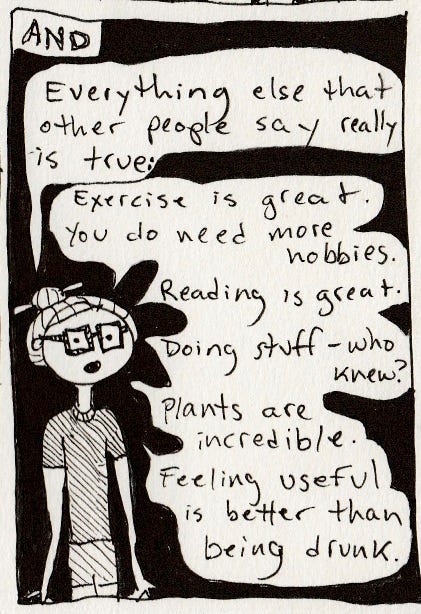 AND
Everything else that
other people say really
is true:
Exercise is great.
You do need more
hobbies.
Reading is great.
Doing stuff - who
knew?
Plants are
incredible.
Feeling useful
is better than
being drunk.